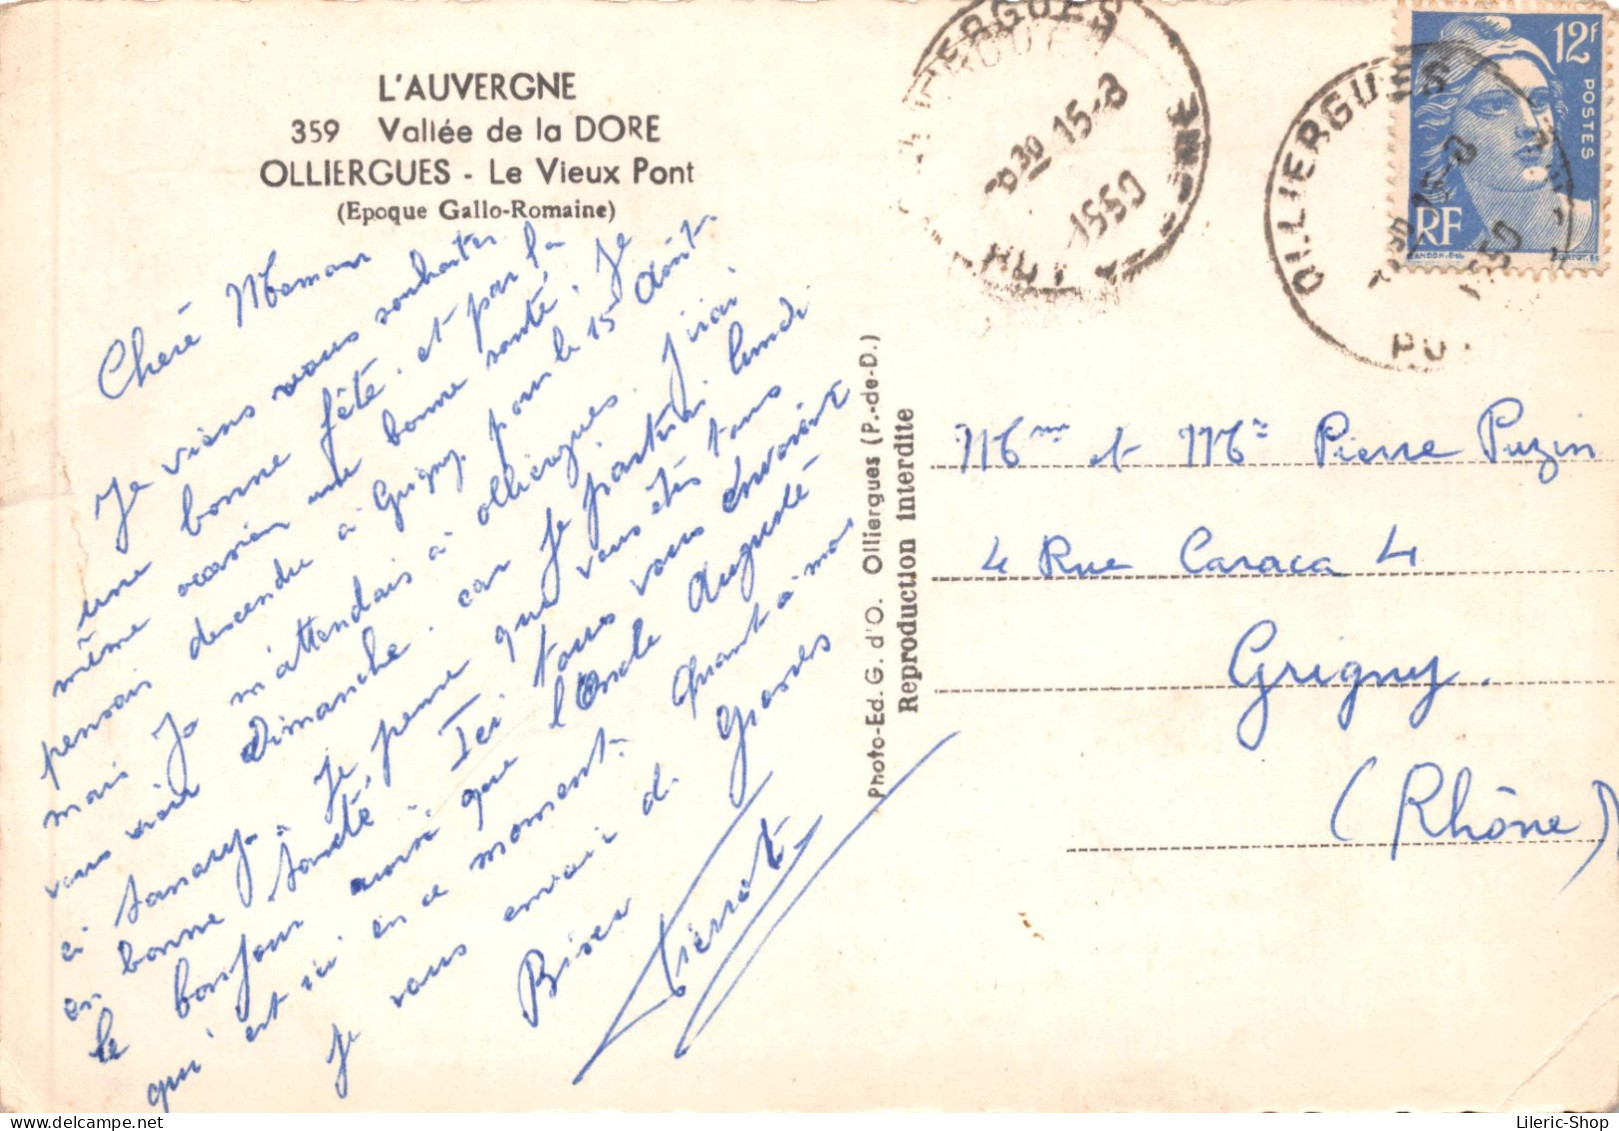 L'AUVERGNE
359 Vallée de la DORE
OLLIERGUES - Le Vieux Pont
(Epoque Gallo-Romaine)
Cheré Maman
Je viens vous souhaiter
une bonne fête. et par la
même occasion une bonne santé. Je
pensais descendre à Grigny. pour le 15 Août.
mais Jo m'attendais à olliergues. J'irai
vous voir Dimanche. car Je partirai lundi
à Sanary. Je pense que vous êtes tous
en bonne santé. Ici tous vous envoient
le bonjour aussi que l'Oncle Auguste
qui est ici en ce moment. Quant à moi
Je vous envoie de Grosses
Bises
Pierrot
Photo-Ed. G. d'O. Olliergues (P.-de-D.)
Reproduction interdite
OLLIERGUES
15-8
1950
PUY DE DOME
OLLIERGUES
1950
PUY
12F
POSTES
RF
GANDON
CORTOT
Mme et Mr Pierre Puzin
4 Rue Caraca 4
Grigny.
(Rhône)
Lileric-Shop